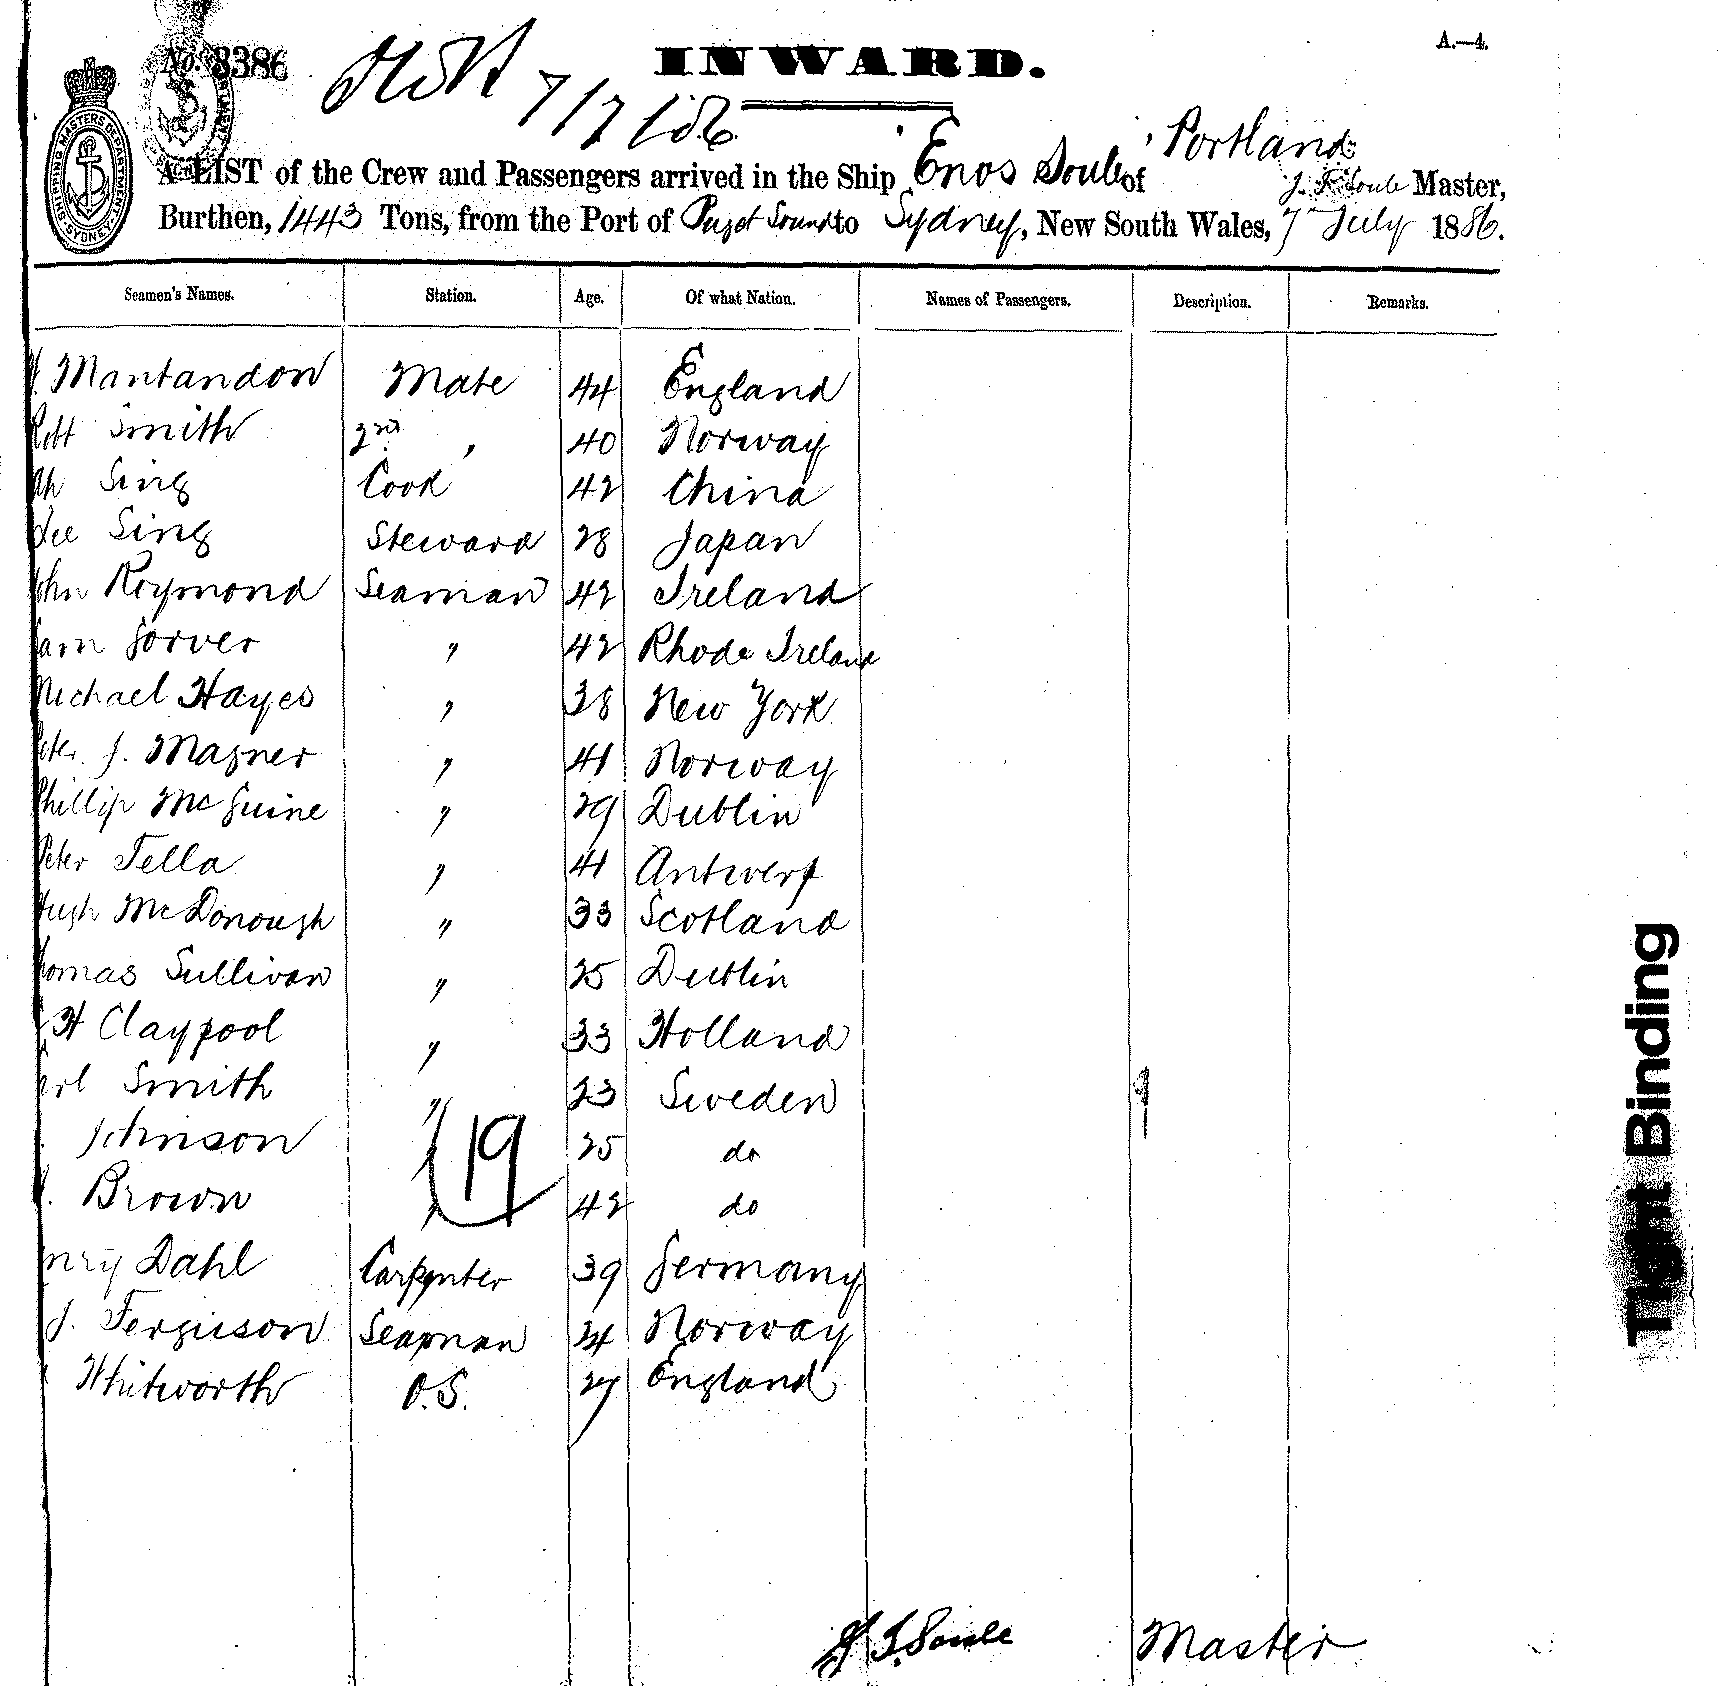 No. 3386
INWARD.
A.—4.
7/7/86
A LIST of the Crew and Passengers arrived in the Ship Enos Soule of Portland J. F. Soule Master,
Burthen, 1443 Tons, from the Port of Puget Sound to Sydney, New South Wales, 7th July 1886.
Seamen's Names. Station. Age. Of what Nation. Names of Passengers. Description. Remarks.
Mantandon Mate 44 England
Robt Smith 2nd " 40 Norway
Ah Sing Cook 42 China
Lee Sing Steward 28 Japan
John Reymond Seaman 42 Ireland
Sam Gorver " 42 Rhode Ireland
Michael Hayes " 38 New York
Peter J. Magner " 41 Norway
Phillip McGuine " 29 Dublin
Peter Tella " 41 Antwerp
Hugh McDonough " 33 Scotland
Thomas Sullivan " 25 Dublin
H Claypool " 33 Holland
Carl Smith " 23 Sweden
Johnson " 25 do
Brown " 42 do
19
Henry Dahl Carpenter 39 Germany
J. Ferguson Seaman 24 Norway
Whitworth O.S. 27 England
J. F. Soule Master
Tight Binding
SHIPPING MASTERS DEPARTMENT SYDNEY